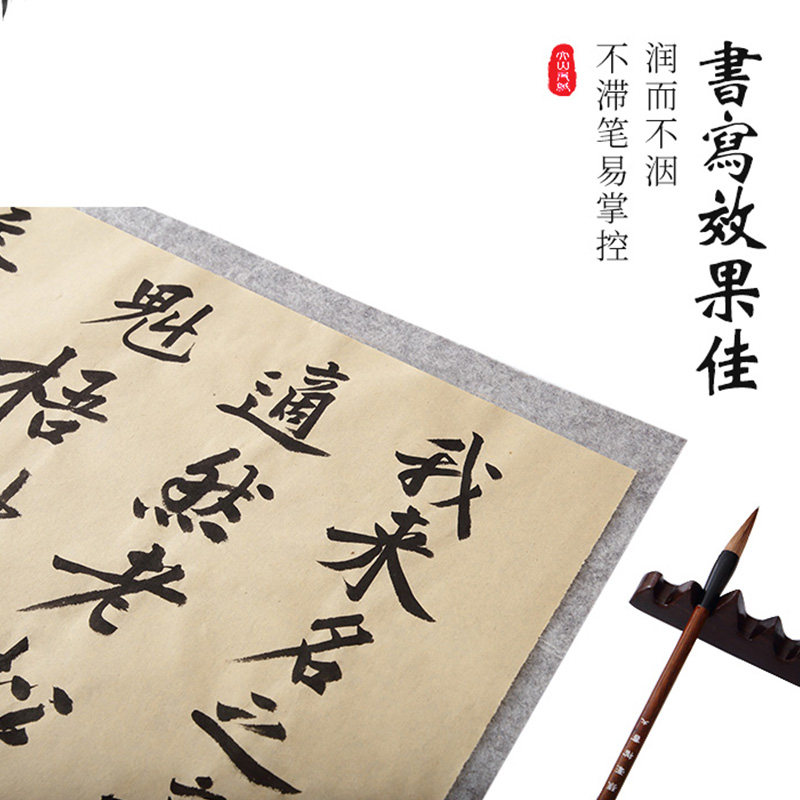 書寫效果佳
润而不洇
不滞笔易掌控
我来名之
適然老松
魁梧